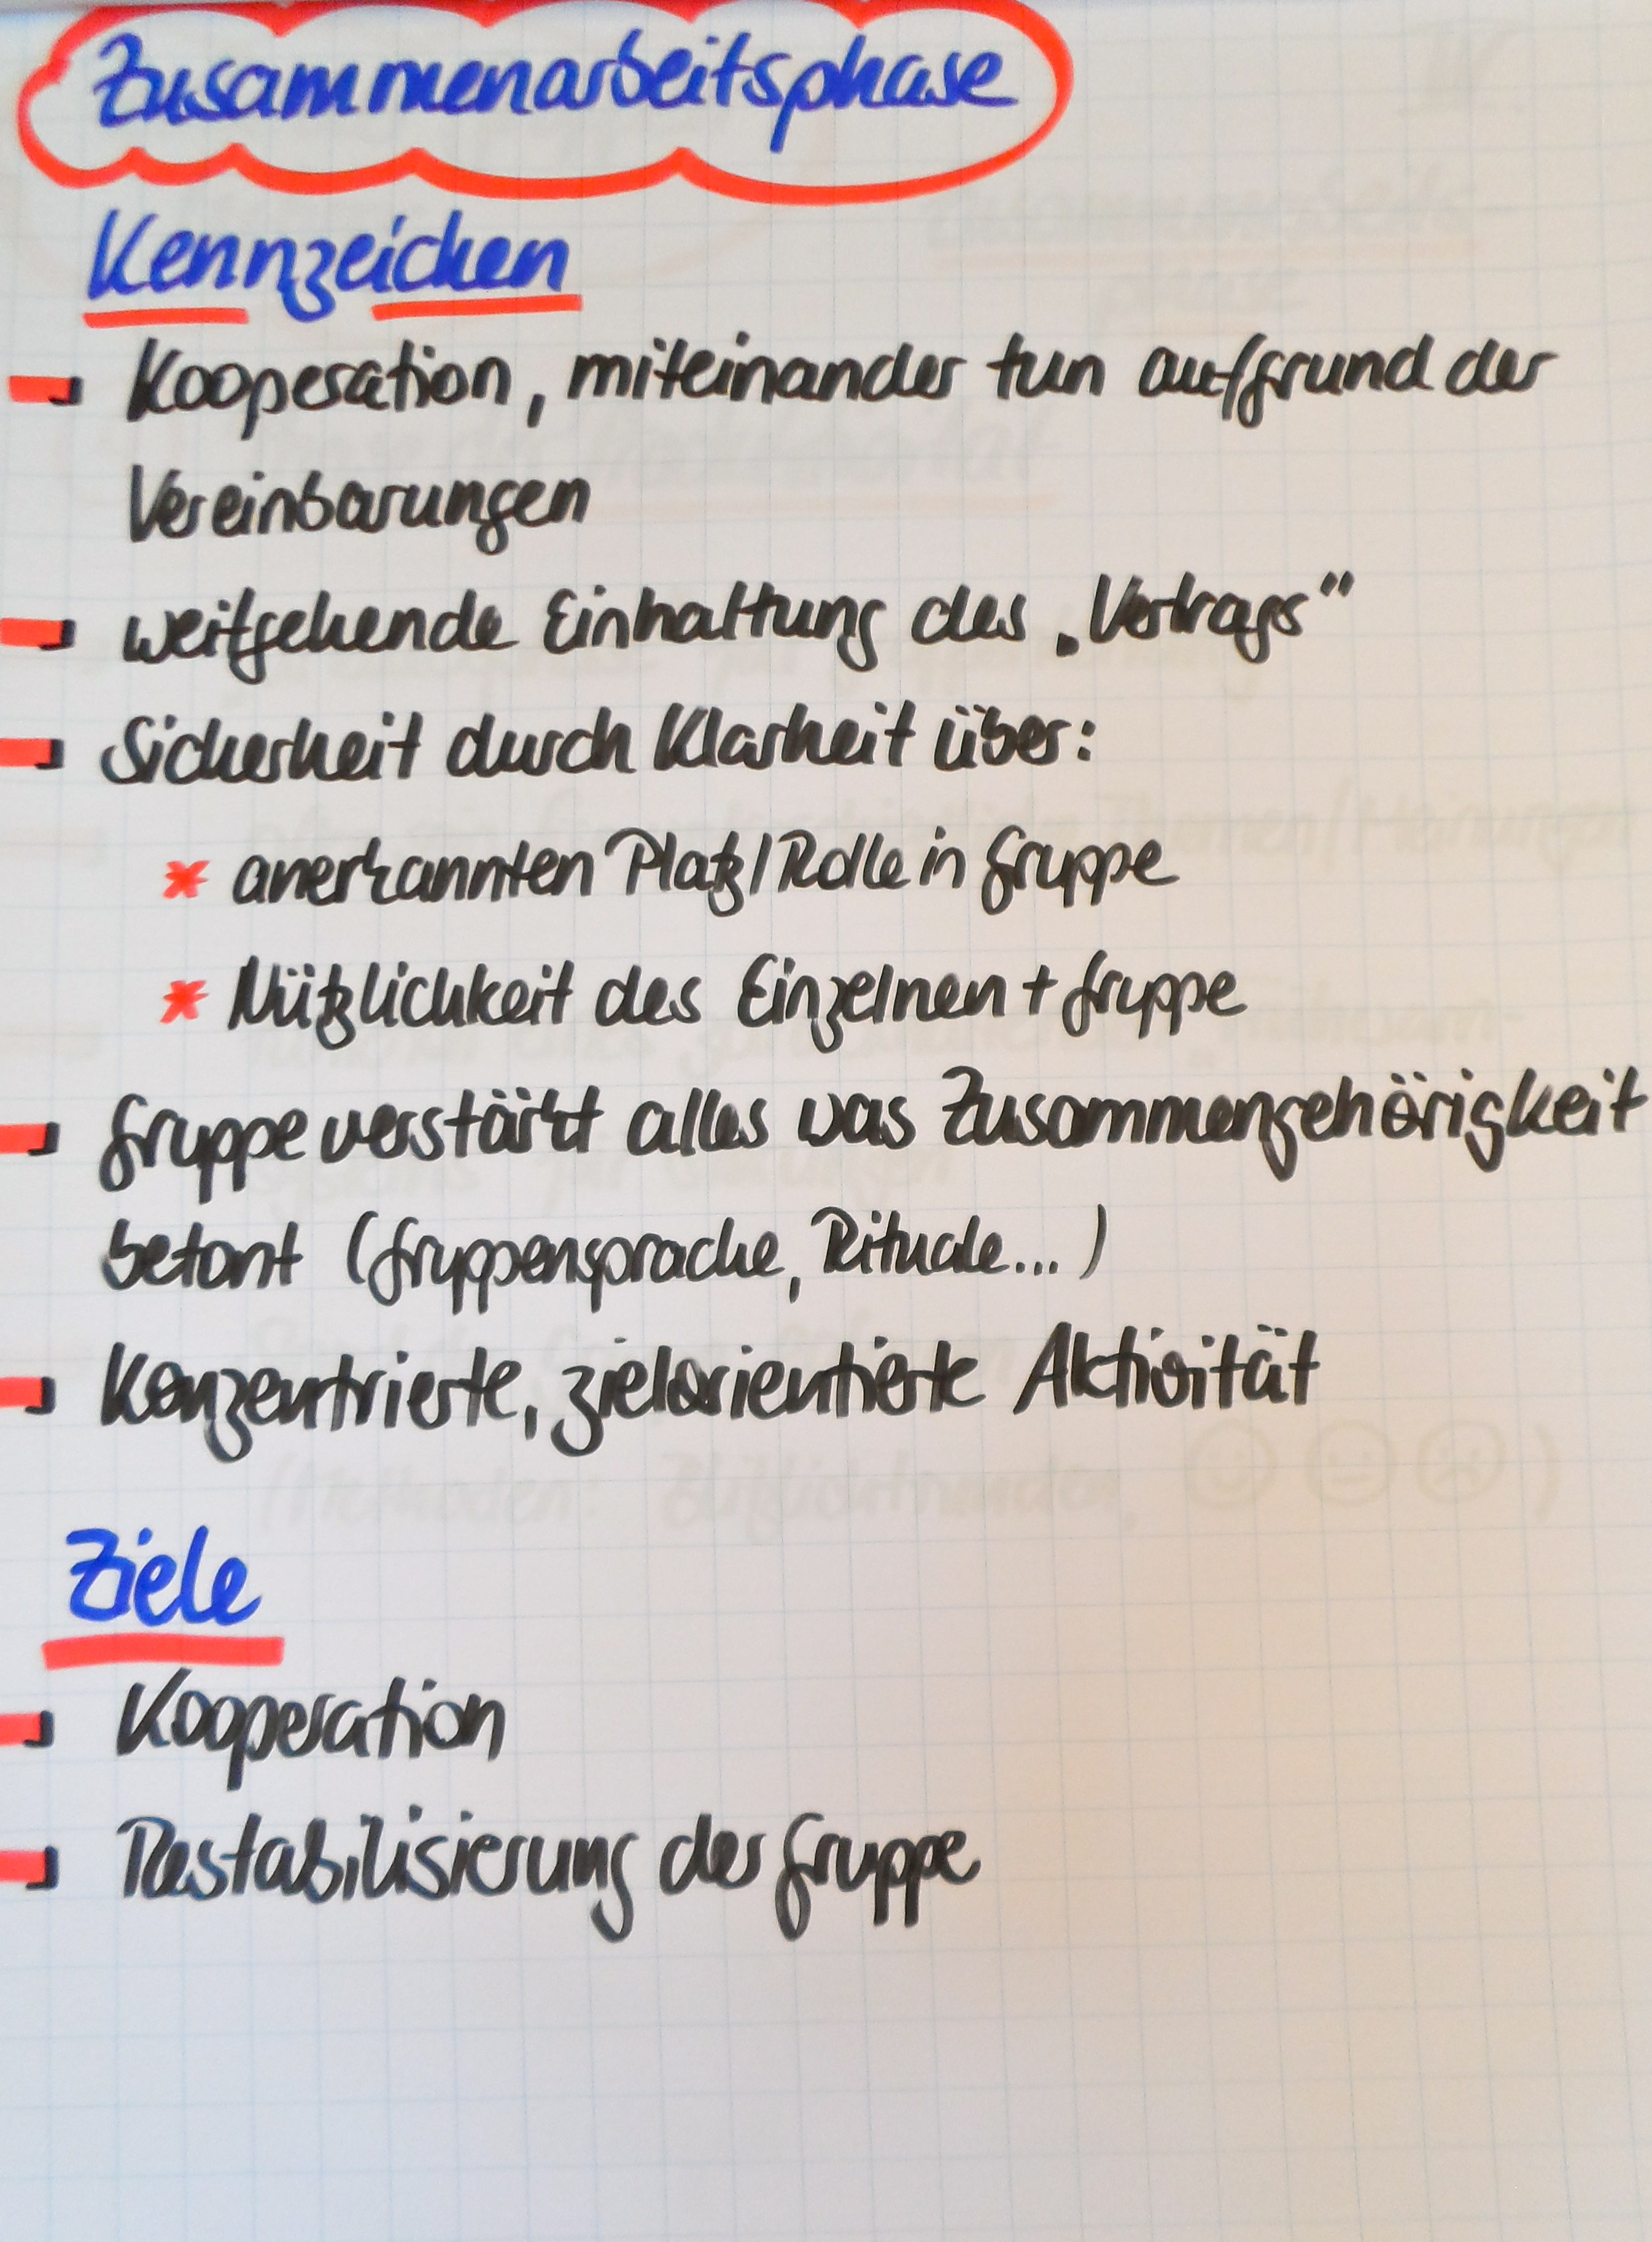 Zusammenarbeitsphase
Kennzeichen
Kooperation, miteinander tun aufgrund der
Vereinbarungen
weitgehende Einhaltung des „Vertrags“
Sicherheit durch Klarheit über:
* anerkannten Platz/Rolle in Gruppe
* Nützlichkeit des Einzelnen + Gruppe
Gruppe verstärkt alles was Zusammengehörigkeit
betont (Gruppensprache, Rituale...)
Konzentrierte, zielorientierte Aktivität
Ziele
Kooperation
Restabilisierung der Gruppe